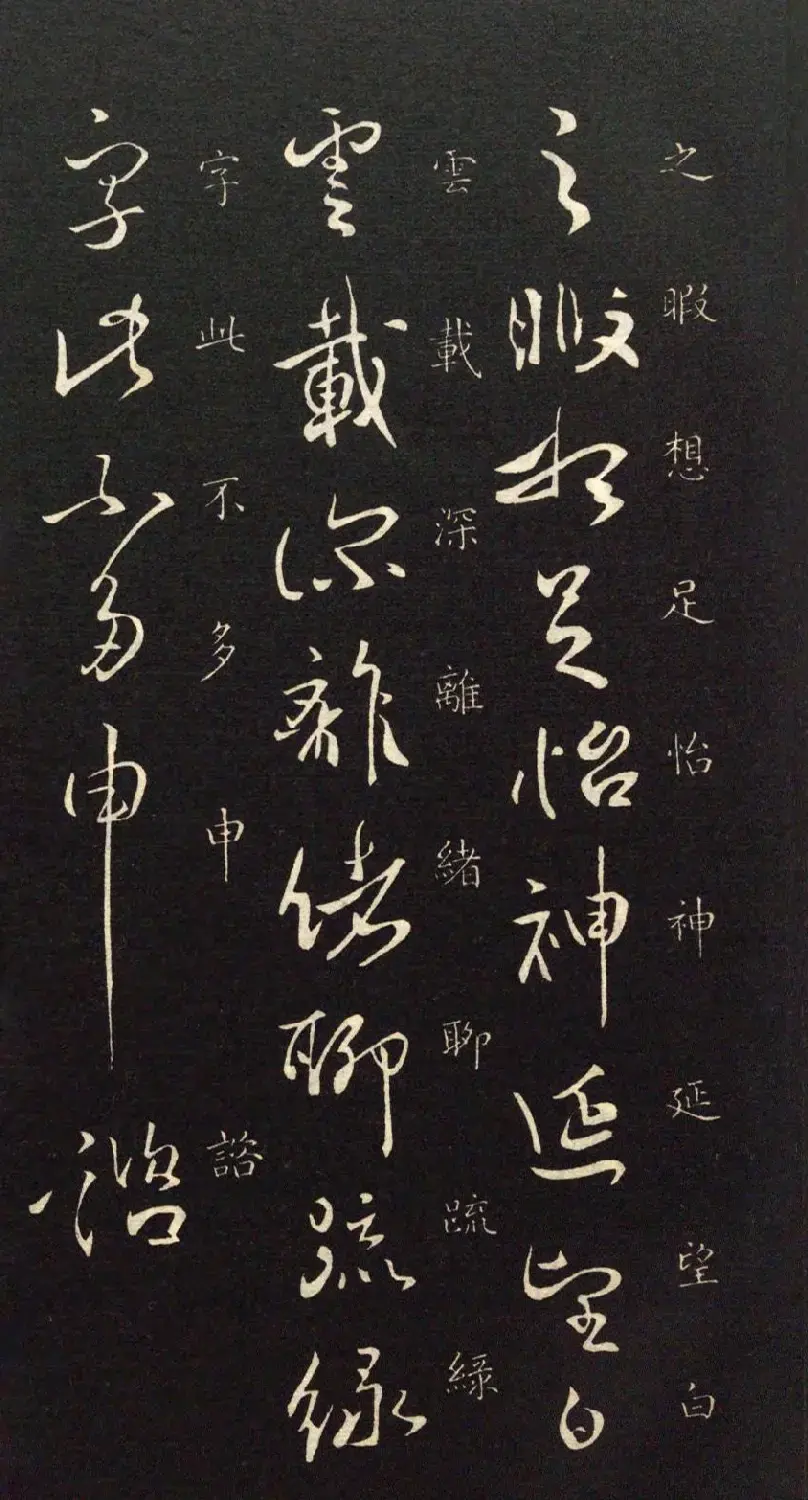 之暇想足怡神延望白
之暇想足怡神延望白
雲載深離緒聊疏緑
雲載深離緒聊疏緑
字此不多申諮
字此不多申諮